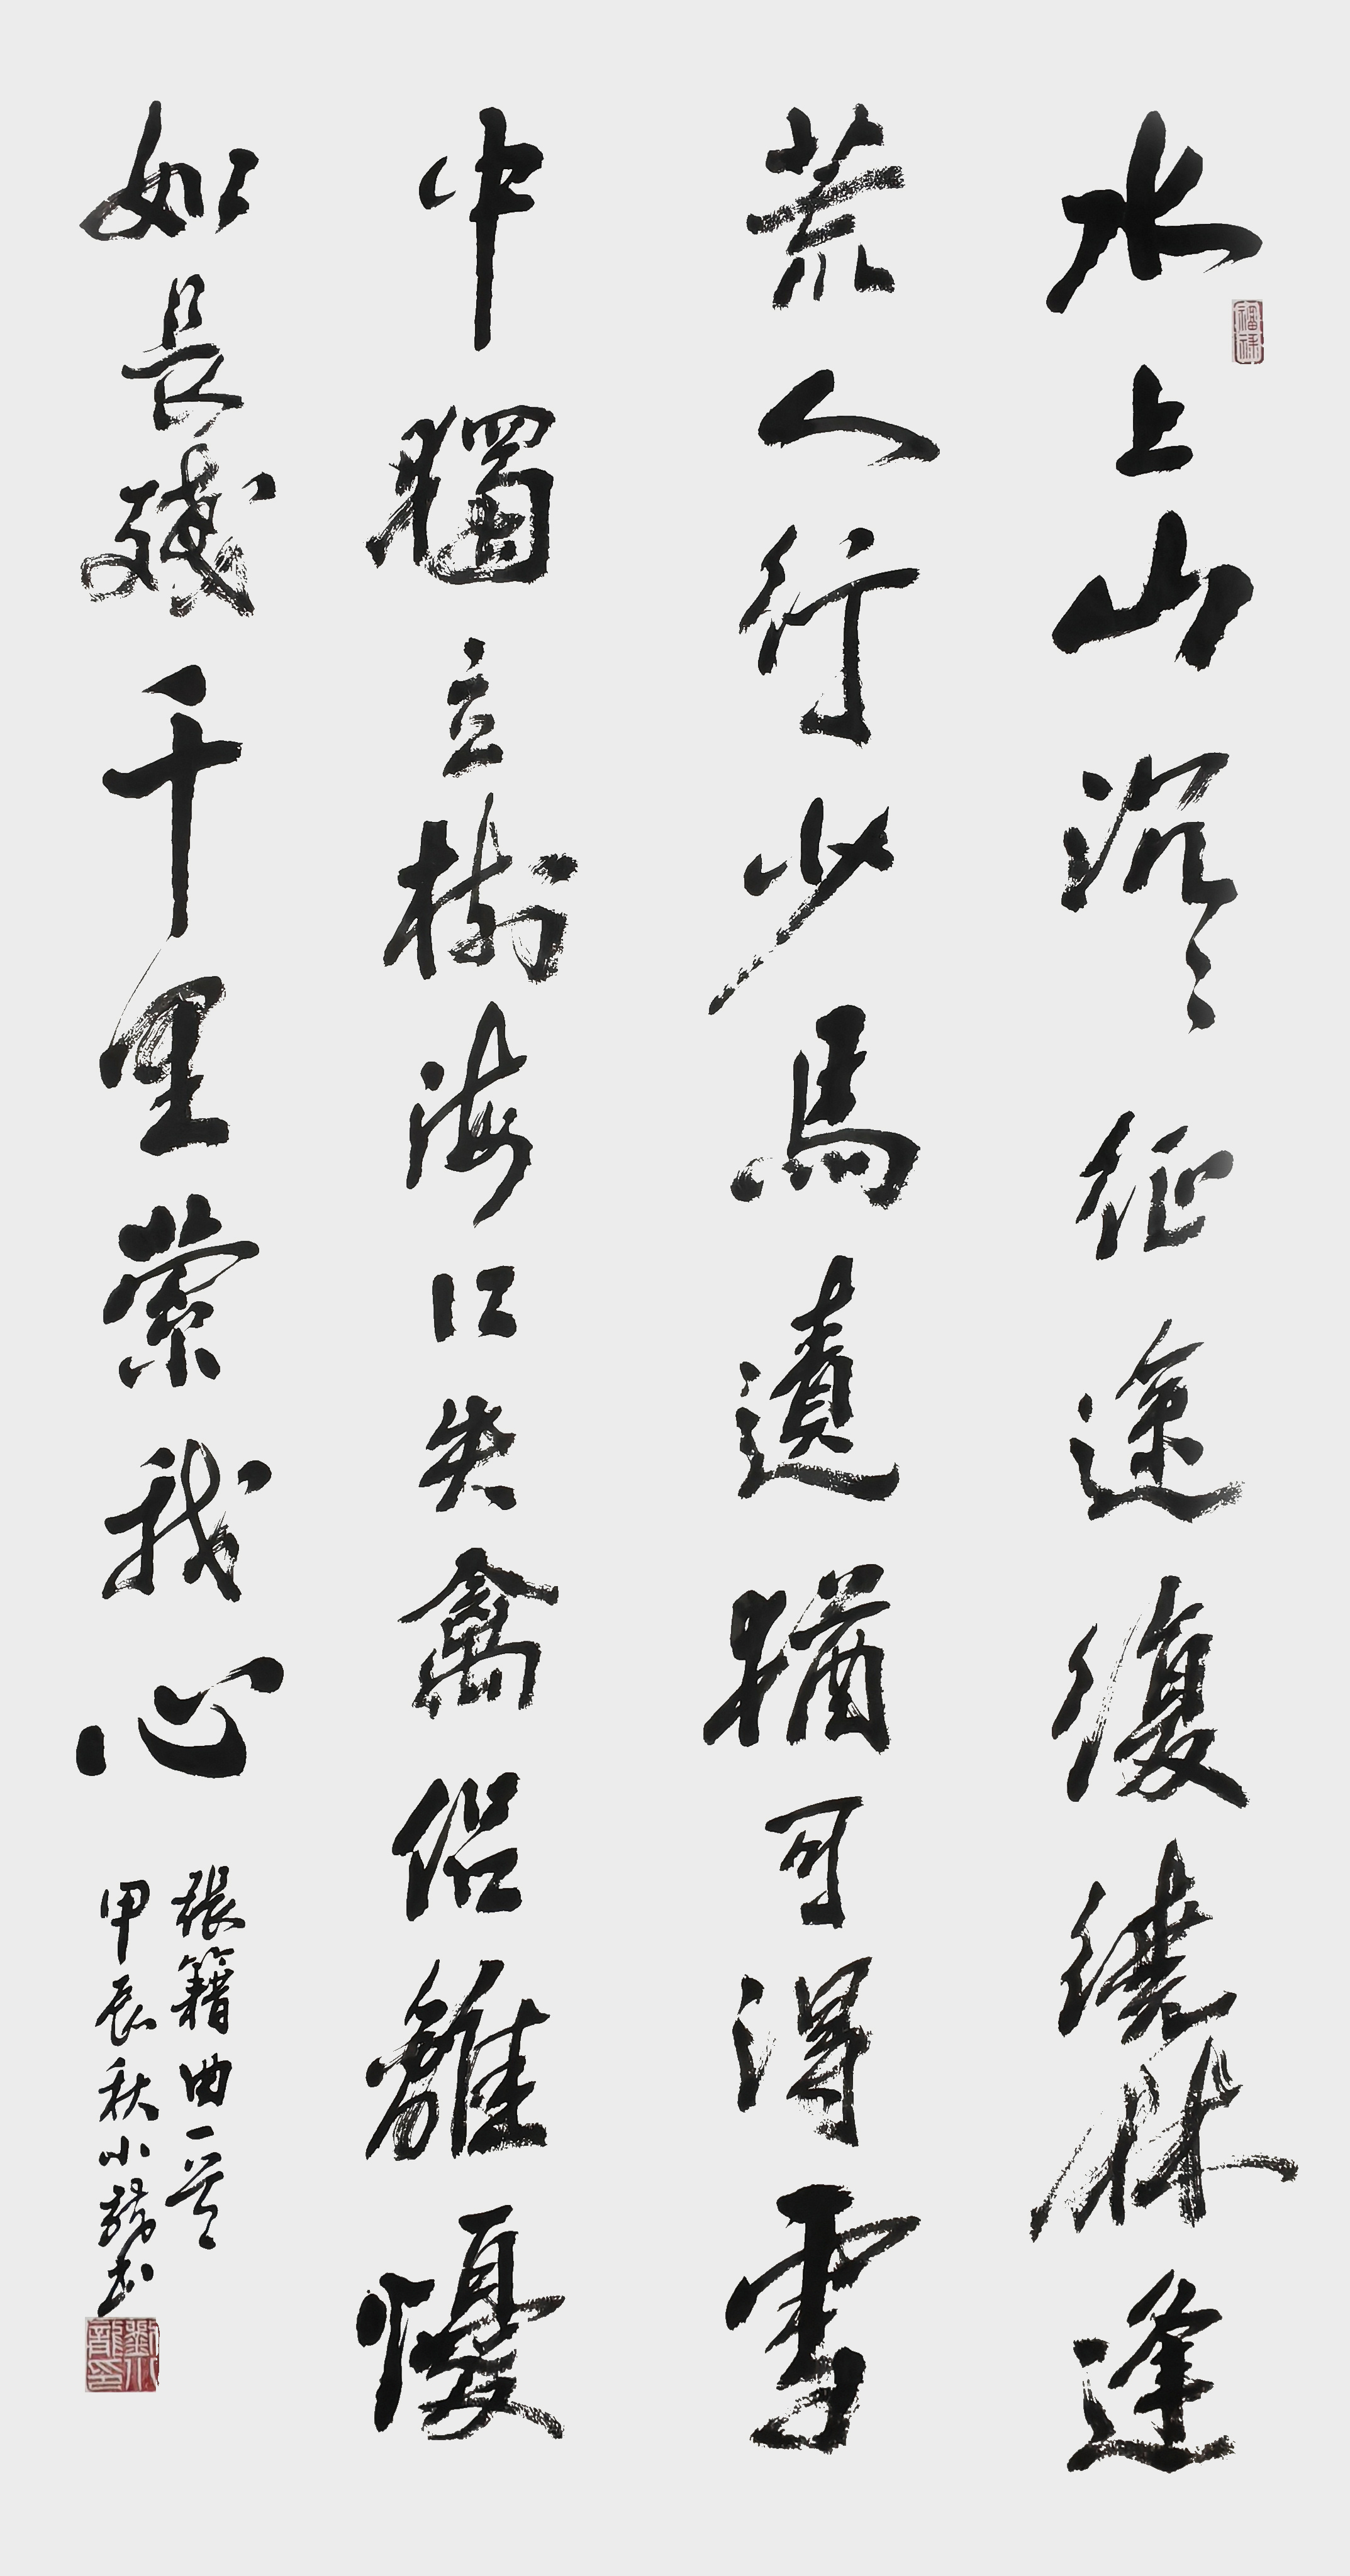 水上山沉々征途復繞林逢
荒人行少馬蹟猶可得雪
中獨立樹海口失禽侶離憂
如長殘千里縈我心
張籍曲一首
甲辰秋小龍書